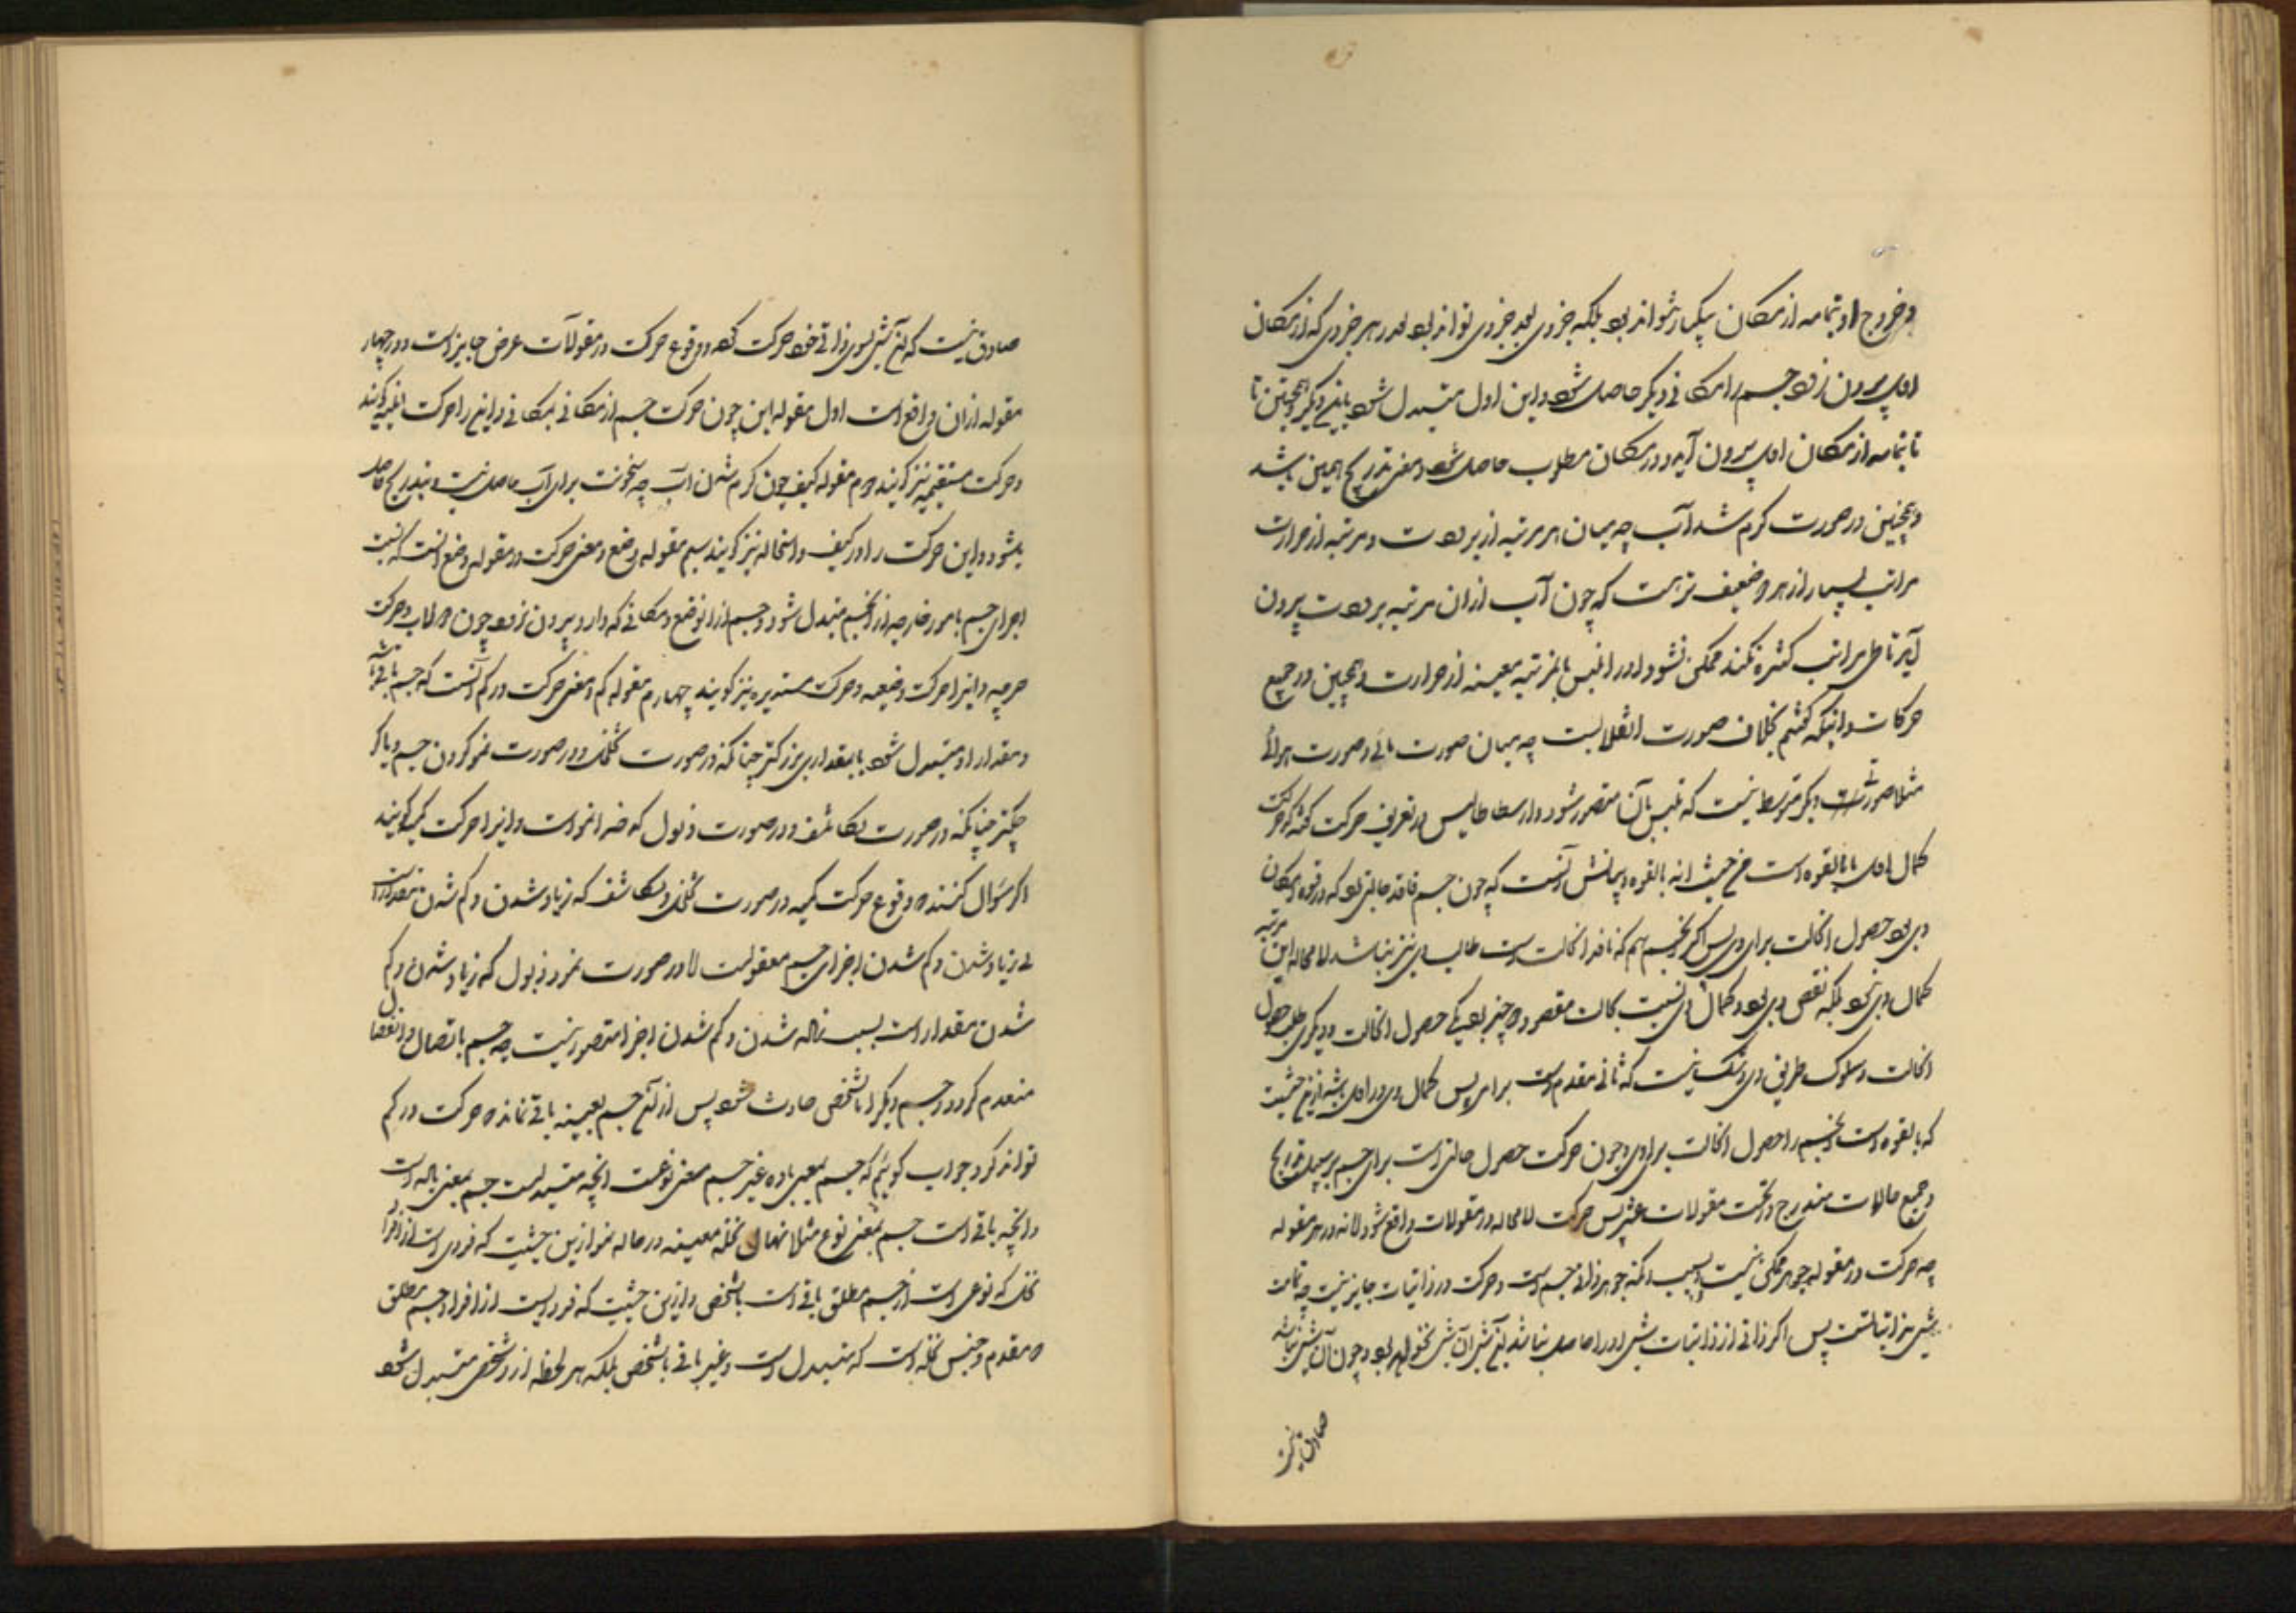 و خروج او بتمامه از مکان بیکبار نتواند بود بلکه جزوی بعد جزوی تواند بود و در هر جزوی که از مکان
اول بیرون رود جسم را مکانی دیگر حاصل شود و این اول متبدل شود باین دیگر و همچنین تا
تا بتمامه از مکان اول بیرون آید و در مکان مطلوب حاصل شود و معنی تدریج همین باشد
و همچنین در صورت کرم شدن آب چه میان هر مرتبه از برودت و مرتبه از حرارت
مراتب بسیار از هر دو ضعیف تر هست که چون آب از ان مرتبه برودت بیرون
آید تا طی مراتب کثیره نکند ممکن نشود او را تلبس بان مرتبه معینه از حرارت و همچنین در جمیع
حرکات و اینکه گفتیم بخلاف صورت انقلابست چه میان صورت مائی و صورت هوائی
مثلا صورتی دیگر متوسط نیست که تلبس بآن متصور شود و ارسطاطالیس در تعریف حرکت گفته که حرکت
کمال اول ما بالقوه است من حیث انه بالقوه و بیانش آنست که چون جسم فاقد حالتی بود که در قوه و امکان
وی بود حصول انحالت برای وی پس اگر انجسم هم که فاقد انحالت است طالب وی نیز نباشد لا محاله این مرتبه
کمال وی نبود بلکه نقص وی بود و کمال وی نسبت بحالت مقصود دو چیز بود یکی حصول انحالت و دیگری طلب حصول
انحالت و سلوک طریق وی و شک نیست که ثانی مقدم است برای پس کمال وی و را اول باشد ازین حیثیت
که بالقوه است انجسم را حصول انحالت برای وی و چون حرکت حصول حالتی است برای جسم بر سبیل تدریج
و جمیع حالات مندرج در تحت مقولات عشر پس حرکت لا محاله در مقولات واقع شود لا نه در هر مقوله
چه حرکت در مقوله جوهر ممکن نیست بسبب انکه جوهر ذاتی جسم است و حرکت در ذاتیات جایز نیست چه تمامیت
شیٔ بذاتیاتست پس اگر ذاتی از ذاتیات شیٔ او را حاصل نباشد آن شیٔ آن شیٔ نخواهد بود و چون آن شیٔ نباشد
صادق نیست
صادق نیست که آن شیٔ بسوی ذاتی خود حرکت کند و وقوع حرکت در مقولات عرض جایز است و در چهار
مقوله از ان واقع است اول مقوله این چون حرکت جسم از مکانی بمکانی و این را حرکت اینیه گویند
و حرکت مستقیمه نیز گویند دوم مقوله کیف چون کرم شدن آب چه سخونت برای آب حاصل نیست و بتدریج حاصل
میشود و این حرکت را در کیف و استحاله نیز گویند سیم مقوله وضع و معنی حرکت در مقوله وضع آنست که نسبت
اجزای جسم بامور خارجه از انجسم متبدل شود و جسم از ان وضع و مکانی که دارد بیرون نرود چون دولاب و حرکت
چرخ و اینرا حرکت وضعیه و حرکت مستدیره نیز گویند چهارم مقوله کم و معنی حرکت در کم آنست که جسم باقی باشد
و مقدار او متبدل شود یا بمقداری بزرگتر چنانکه در صورت تخلخل و در صورت نمو کردن جسم و یا کو
چکتر چنانکه در صورت تکاثف و در صورت ذبول که ضد نمو است و اینرا حرکت کمیه گویند
اگر سؤال کنند که وقوع حرکت کمیه در صورت تخلخل و تکاثف که زیاد شدن و کم شدن مقدار است
بی زیاد شدن و کم شدن اجزای جسم معقولست لا در صورت نمو و ذبول که زیاد شدن و کم
شدن مقدار است بسبب زیاده شدن و کم شدن اجزا متصور نیست چه جسم باتصال و انفصال
منعدم گردد و جسم دیگر بالشخص حادث شود پس از آن جسم بعینه باقی نمانده حرکت در کم
تواند کرد جواب گوئیم که جسم بمعنی ماده غیر جسم بمعنی نوعست انچه متبدلست جسم بمعنی ماده است
و انچه باقی است جسم بمعنی نوع مثلا نهال نخله معینه در حاله نمو ازین حیثیت که فردی است از افراد
نخل که نوعی است از جسم مطلق باقی است بالشخص و ازین حیثیت که فردیست از افراد جسم مطلق
که مقدم و جنس نخله است که متبدل است و غیر باقی بالشخص بلکه هر لحظه از وی شخصی متبدل شود